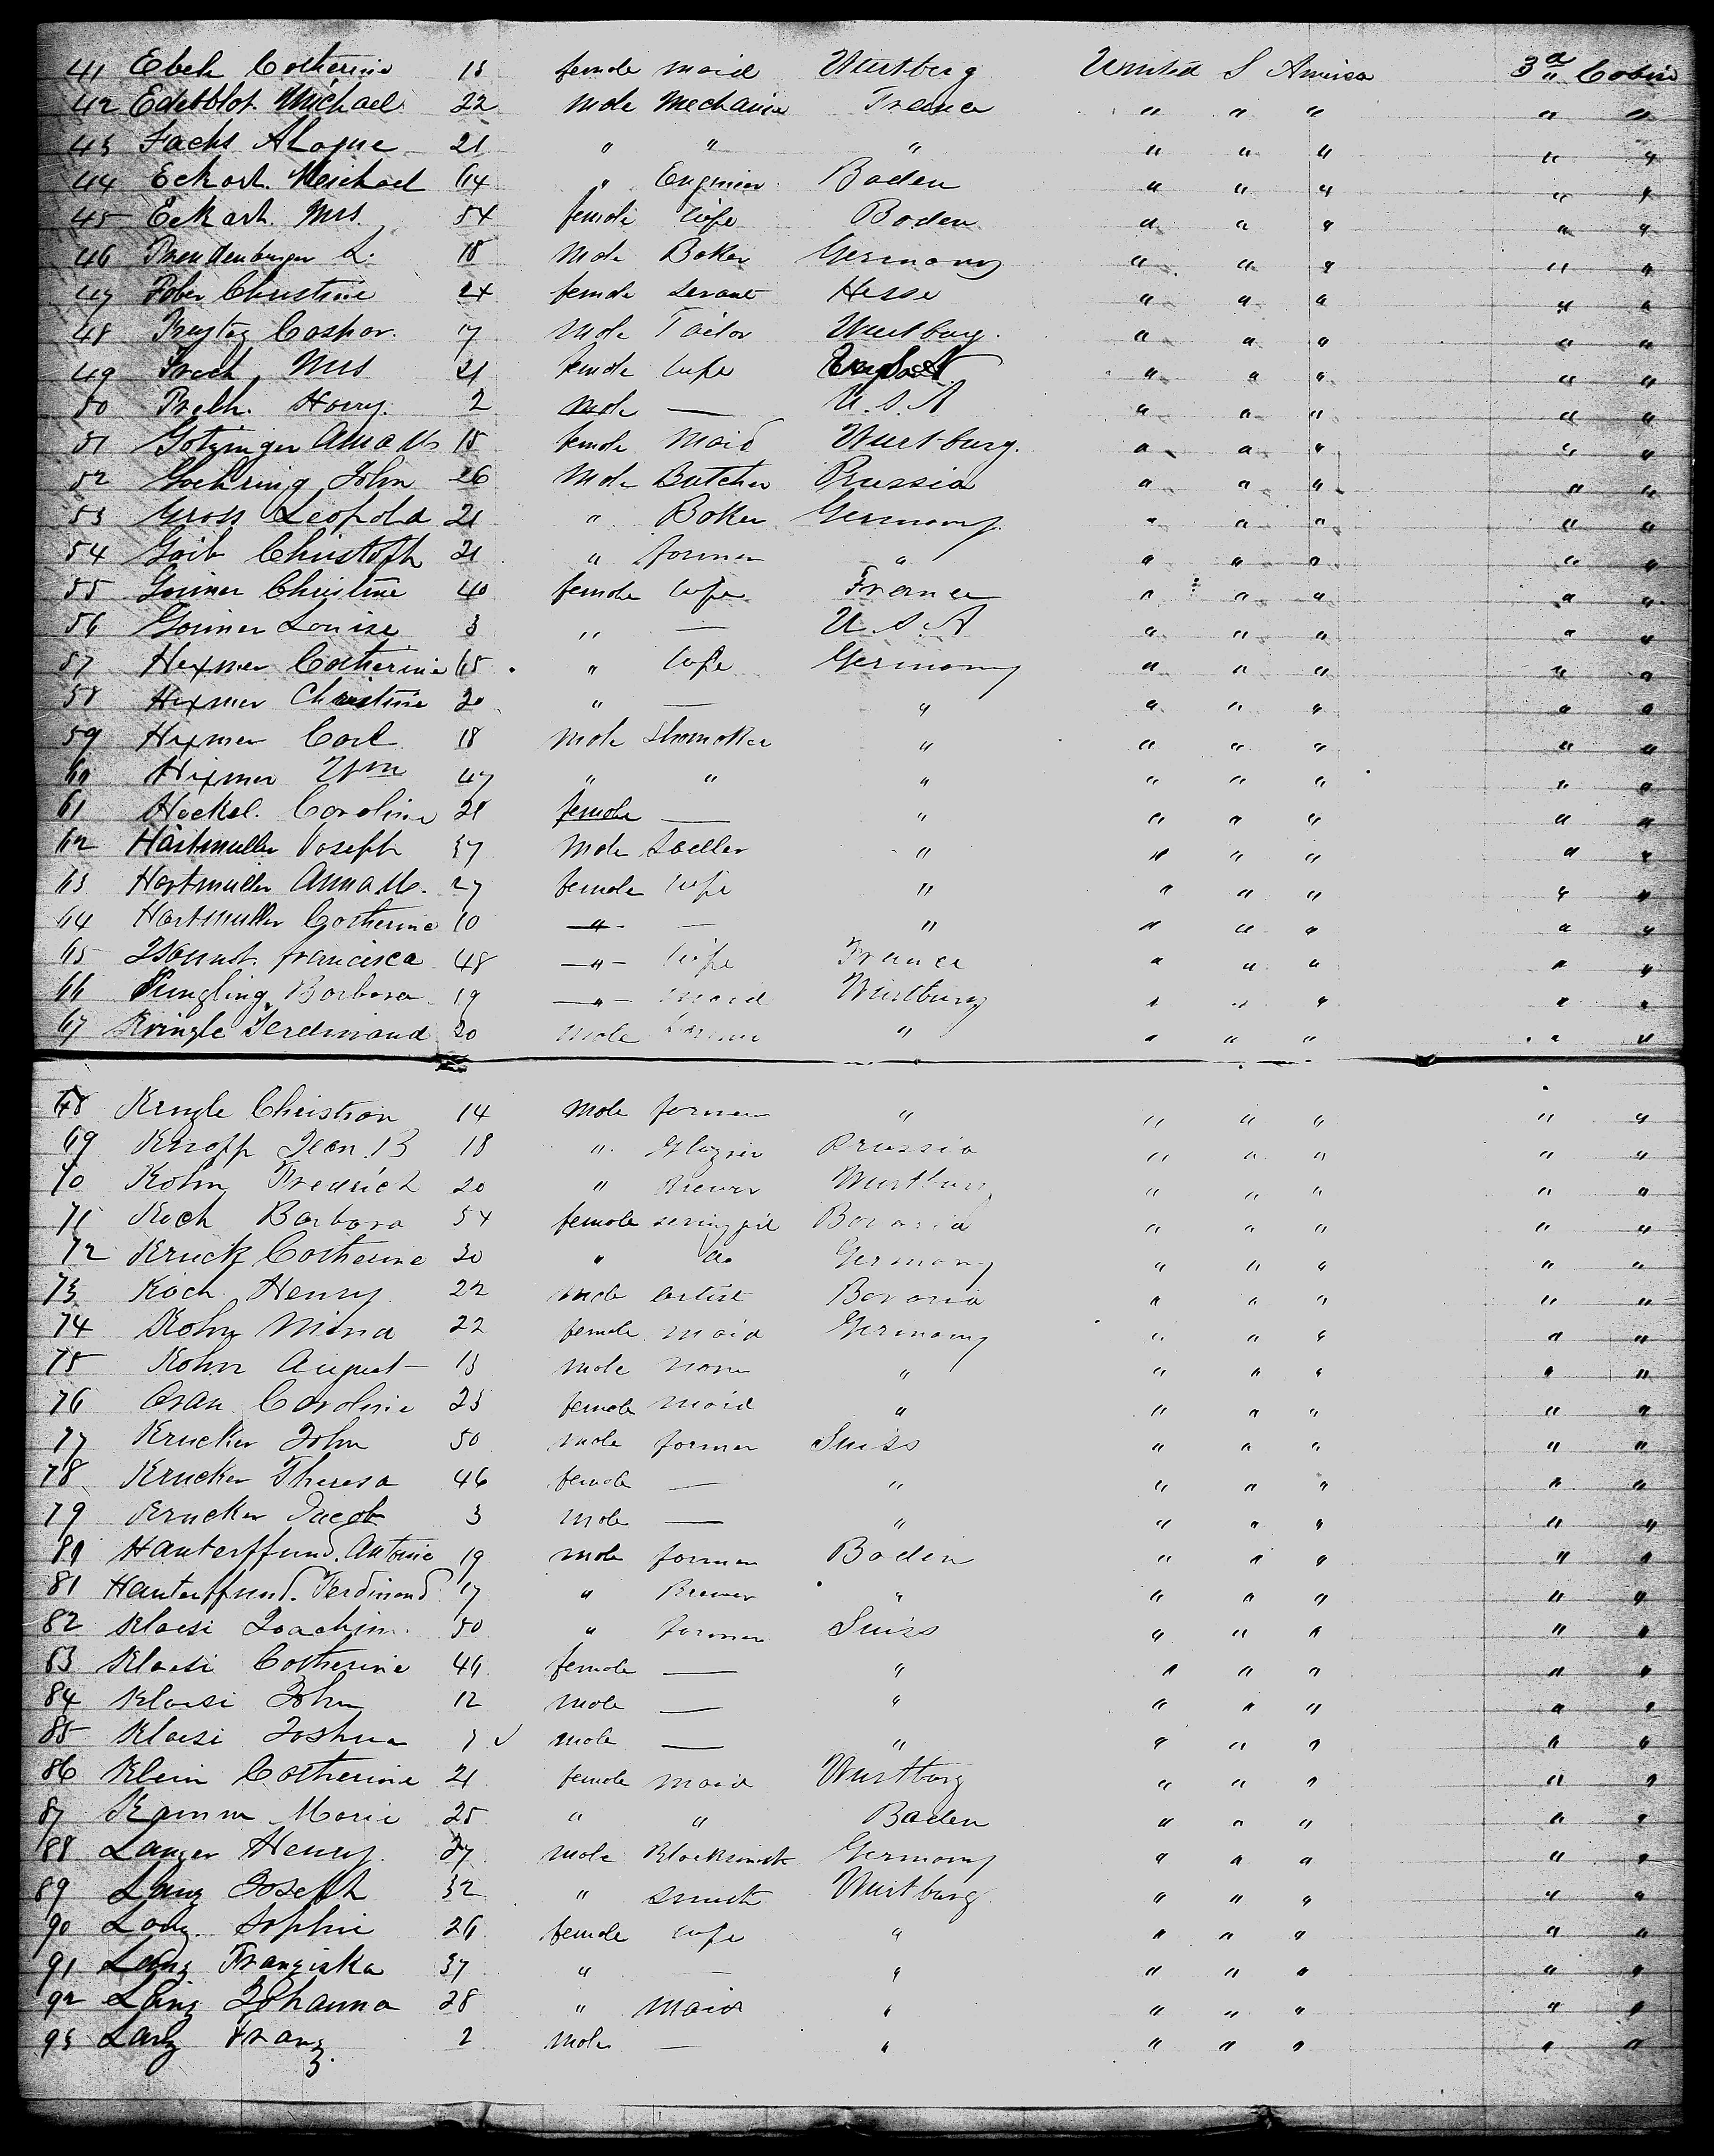 41 Ebeh Catherine 18 female maid Wurtberg United S America 3d Cabin
42 Edelblot Michael 22 male Mechanic France " " " " "
43 Fachs Alogue 21 " " " " " " " "
44 Eckart. Meichael 64 " Engineer Baden " " " " "
45 Eckart. Mrs. 54 female wife Baden " " " " "
46 L. 18 male Baker Germany " " " " "
47 Fober Christine 24 female servant Hesse " " " " "
48 Freytag Caspar. 17 male Tailor Wurtburg. " " " " "
49 Frech, Mrs 21 female wife " " " " "
50 Frech. Harry. 2 male — U.S.A " " " " "
51 Gotzinger Anna M. 18 female maid Wurtburg. " " " " "
52 Goehring John 26 male Butcher Prussia " " " " "
53 Gross Leopold 21 " Baker Germany. " " " " "
54 Goib Christoph 21 " farmer " " " " " "
55 Goriner Christine 40 female wife France " " " " "
56 Goriner Louise 3 " — U.S.A " " " " "
57 Hexmer Catherine 65 " wife Germany " " " " "
58 Hexmer Christine 20 " — " " " " " "
59 Hexmer Carl 18 male Shomaker " " " " " "
60 Hexmer Wm 47 " " " " " " " "
61 Heckel. Caroline 21 female — " " " " " "
62 Hartmuller Joseph 37 male Sadler " " " " " "
63 Hartmuller Anna M. 27 female wife " " " " " "
64 Hartmuller Catherine 10 " — " " " " " "
65 francisca 48 " wife France " " " " "
66 Jungling Barbara 19 " maid Wurtburg " " " " "
67 Kringle Ferdinand 20 male farmer " " " " " "
68 Kringle Christian 14 male farmer " " " " " "
69 Knopp Jean. B 18 " Glazier Prussia " " " " "
70 Kohn Fredrich 20 " Brewer Wurtburg " " " " "
71 Koch Barbara 54 female Bavaria " " " " "
72 Kruck Catherine 30 " do Germany " " " " "
73 Koch Henry 22 male artist Bavaria " " " " "
74 Kohn Mina 22 female maid Germany " " " " "
75 Kohn August 13 male none " " " " " "
76 Caroline 23 female maid " " " " " "
77 Krucker John 50 male farmer Suiss " " " " "
78 Krucker Theresa 46 female — " " " " " "
79 Krucker Jacob 3 male — " " " " " "
80 Hanterffund. Antonie 19 male farmer Baden " " " " "
81 Hanterffund. Ferdinand 17 " Brewer " " " " " "
82 Kloesi Joachim. 50 " farmer Suiss " " " " "
83 Kloesi Catherine 46 female — " " " " " "
84 Kloesi John 12 male — " " " " " "
85 Kloesi Joshua male — " " " " " "
86 Klein Catherine 21 female maid Wurtburg " " " " "
87 Kamm Marie 25 " " Baden " " " " "
88 Langer Henry. 27 male Blacksmith Germany " " " " "
89 Lang Joseph 32 " smith Wurtburg " " " " "
90 Lang. Sophie 26 female wife " " " " " "
91 Lang Franziska 37 " — " " " " " "
92 Lang Johanna 28 " maid " " " " " "
93 Lang Franz. 2 male — " " " " " "